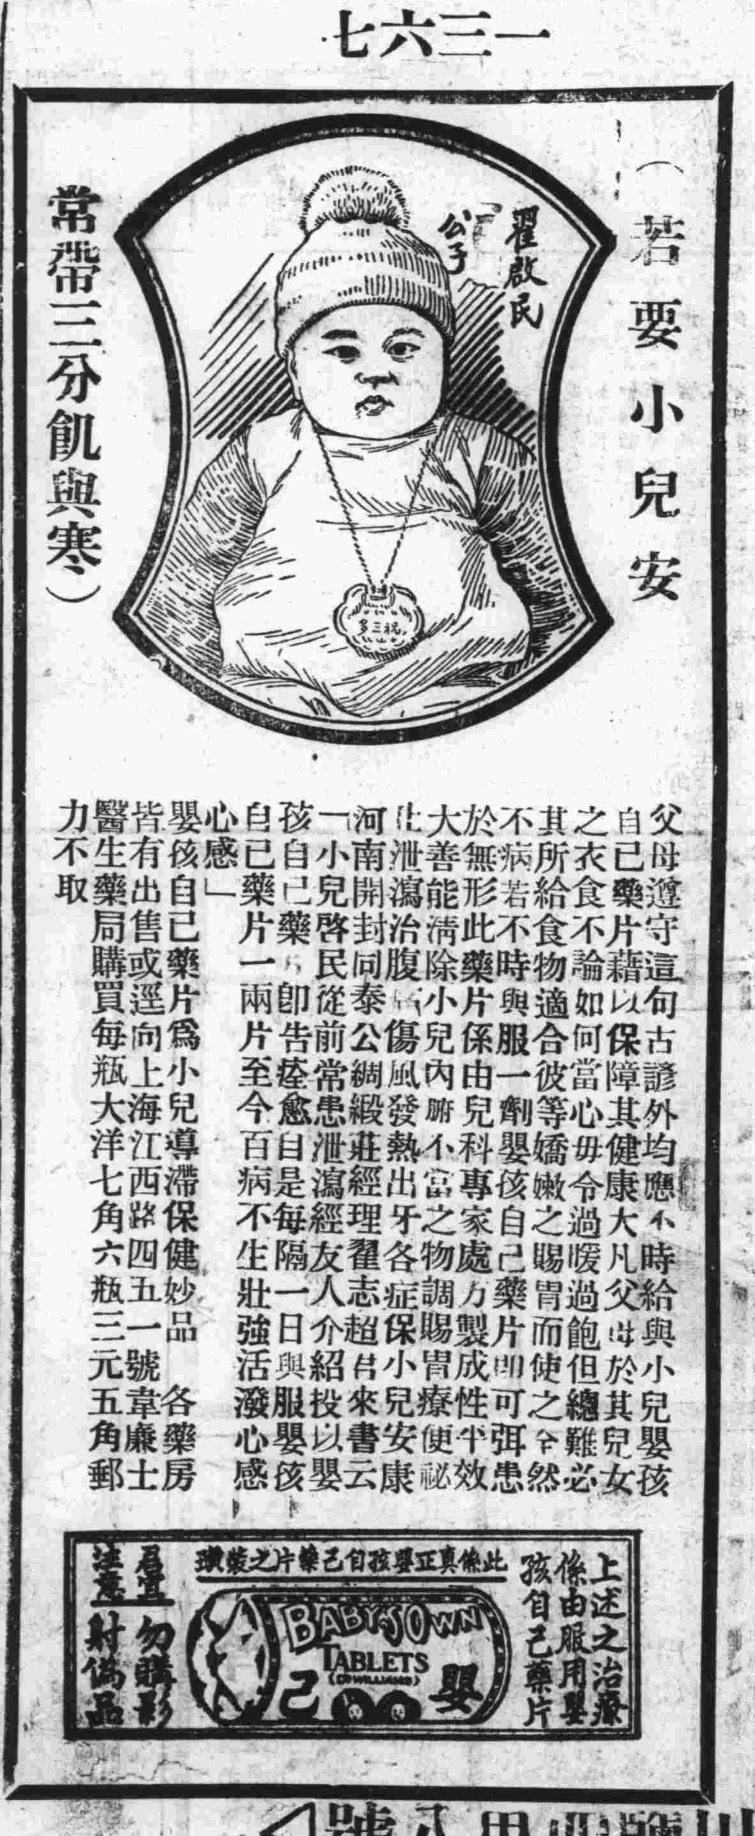 一三六七
（若要小兒安
常帶三分飢與寒）
翟啟民
公子
祝三多
父母遵守這句古諺外均應不時給與小兒嬰孩
自己藥片藉以保障其健康大凡父母於其兒女
之衣食不論如何當心毋令過暖過飽但總難必
其所給食物適合彼等嬌嫩之腸胃而使之全然
不病若不時與服一劑嬰孩自己藥片即可弭患
於無形此藥片係由兒科專家處方製成性平效
大善能淸除小兒內腑不當之物調腸胃療便祕
止泄瀉治腹痛傷風發熱出牙各症保小兒安康
河南開封同泰公綢緞莊經理翟志超君來書云
「小兒啓民從前常患泄瀉經友人介紹投以嬰
孩自己藥片卽告痊愈自是每隔一日與服嬰孩
自己藥片一兩片至今百病不生壯強活潑心感
心感」
嬰孩自己藥片爲小兒導滯保健妙品 各藥房
皆有出售或逕向上海江西路四五一號韋廉士
醫生藥局購買每瓶大洋七角六瓶三元五角郵
力不取
上述之治療
係由服用嬰
孩自己藥片
此係真正嬰孩自己藥片之裝璜
BABY'S OWN
TABLETS
(DR WILLIAMS)
嬰
己
君宜 勿購影
注意 射偽品